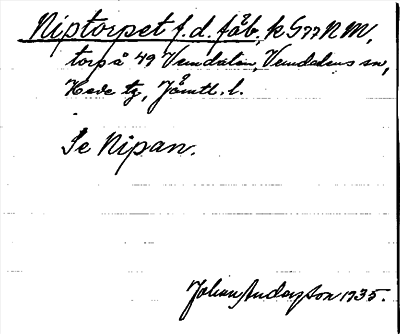 Niptorpet f. d. fäb, k G77NM,
torp å 49 Vemdalen, Vemdalens sn,
Hede tg, Jämtl. l.
Se Nipan.
Johan Anderson 1935.